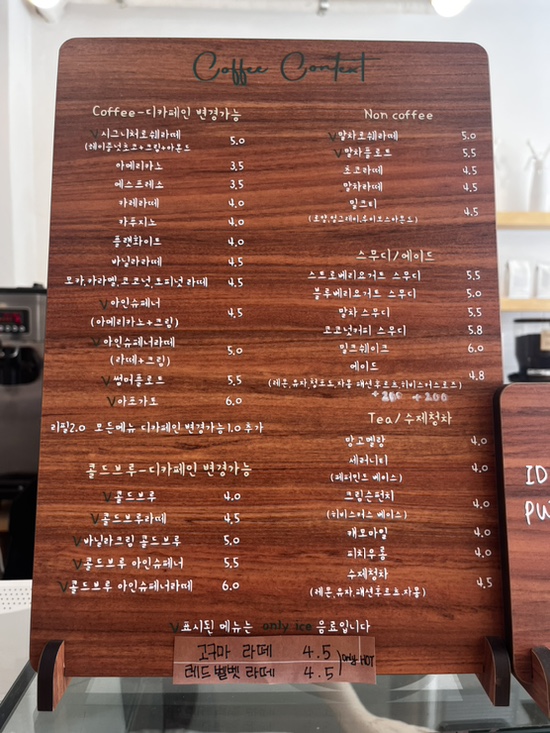 Coffee Context
Coffee-디카페인 변경가능
V시그니처로쉐라떼 5.0
아메리카노 3.5
에스프레소 3.5
카페라떼 4.0
카푸치노 4.0
플랫화이트 4.0
바닐라라떼 4.5
모카,카라멜,코코넛,토피넛 라떼 4.5
V아인슈페너 4.5
(아메리카노+크림)
V아인슈페너라떼 5.0
(라떼+크림)
V썸머플로트 5.5
V아포가토 6.0
리필2.0 모든메뉴 디카페인 변경가능1.0 추가
콜드브루-디카페인 변경가능
V콜드브루 4.0
V콜드브루라떼 4.5
V바닐라크림 콜드브루 5.0
V콜드브루 아인슈페너 5.5
V콜드브루 아인슈페너라떼 6.0
Non coffee
V말차로쉐라떼 5.0
V말차플로트 5.5
초코라떼 4.5
말차라떼 4.5
밀크티 4.5
스무디/에이드
스트로베리요거트 스무디 5.5
블루베리요거트 스무디 5.0
말차 스무디 5.5
코코넛커피 스무디 5.8
밀크쉐이크 6.0
에이드 4.8
(레몬,유자,청포도,자몽 패션후르츠,히비스커스로즈)
+200 +200
Tea/수제청차
망고멜랑 4.0
세러니티 4.0
(페퍼민트 베이스)
크림슨펀치 4.0
(히비스커스 베이스)
캐모마일 4.0
피치우롱 4.0
수제청차 4.5
(레몬,유자,패션후르츠,자몽)
V표시된 메뉴는 only ice 음료입니다
고구마 라떼 4.5
레드벨벳 라떼 4.5
only HOT